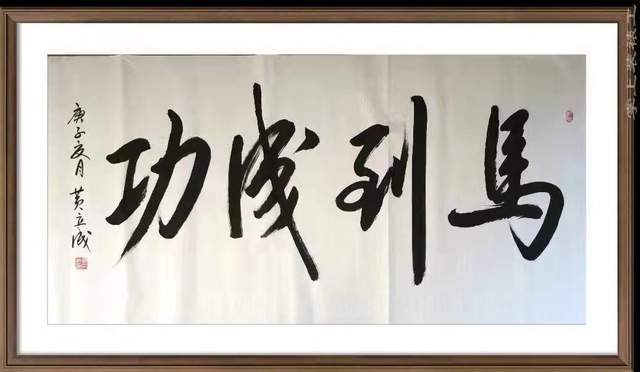 馬到成功
庚子夏月 黄立成